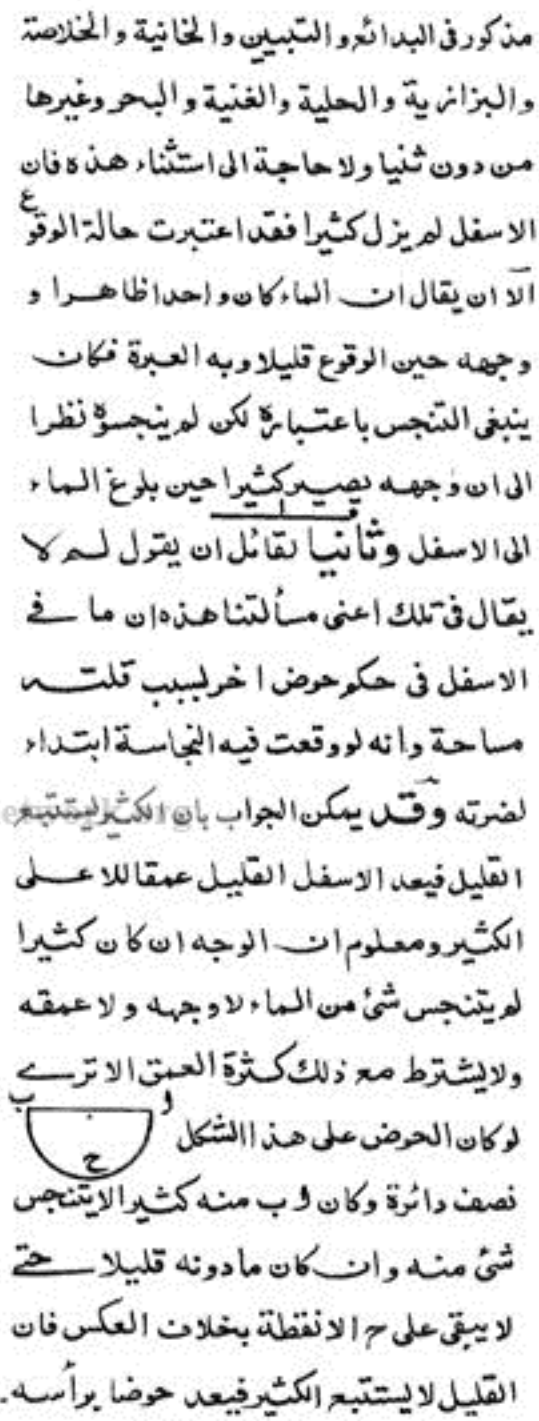 مذكور فى البدائع و التبيين و الخانية و الخلاصة
والبزازية والحلية والغنية والبحر وغيرها
من دون ثنيا ولا حاجة الى استثناء هذه فان
الاسفل لم يزل كثيرا فقد اعتبرت حالة الوقوع
الّا ان يقال ان الماء كان واحدا ظاهرا و
وجهه حين الوقوع قليلا وبه العبرة فكان
ينبغى التنجس باعتباره لكن لم ينجسوه نظرا
الى ان وجهه يصير كثيرا حين بلوغ الماء
الى الاسفل وثانيا لقائل ان يقول لم لا
يقال فى تلك اعنى مسألتنا هذه ان ما فے
الاسفل فى حكم حوض اخر لسبب قلته
مساحة وانه لو وقعت فيه النجاسة ابتداء
لضرته وقد يمكن الجواب بان الكثير يستتبع
القليل فيعد الاسفل القليل عمقا للاعلى
الكثير ومعلوم ان الوجه ان كان كثيرا
لم يتنجس شئ من الماء لا وجهه ولا عمقه
ولا يشترط مع ذلك كثرة العمق الا ترے
لو كان الحوض على هذا الشكل ا ب ح
نصف دائرة وكان ا ب منه كثيرا لا يتنجس
شئ منه وان كان ما دونه قليلا حتے
لا يبقى على ح الا نقطة بخلاف العكس فان
القليل لا يستتبع الكثير فيعد حوضا برأسه.